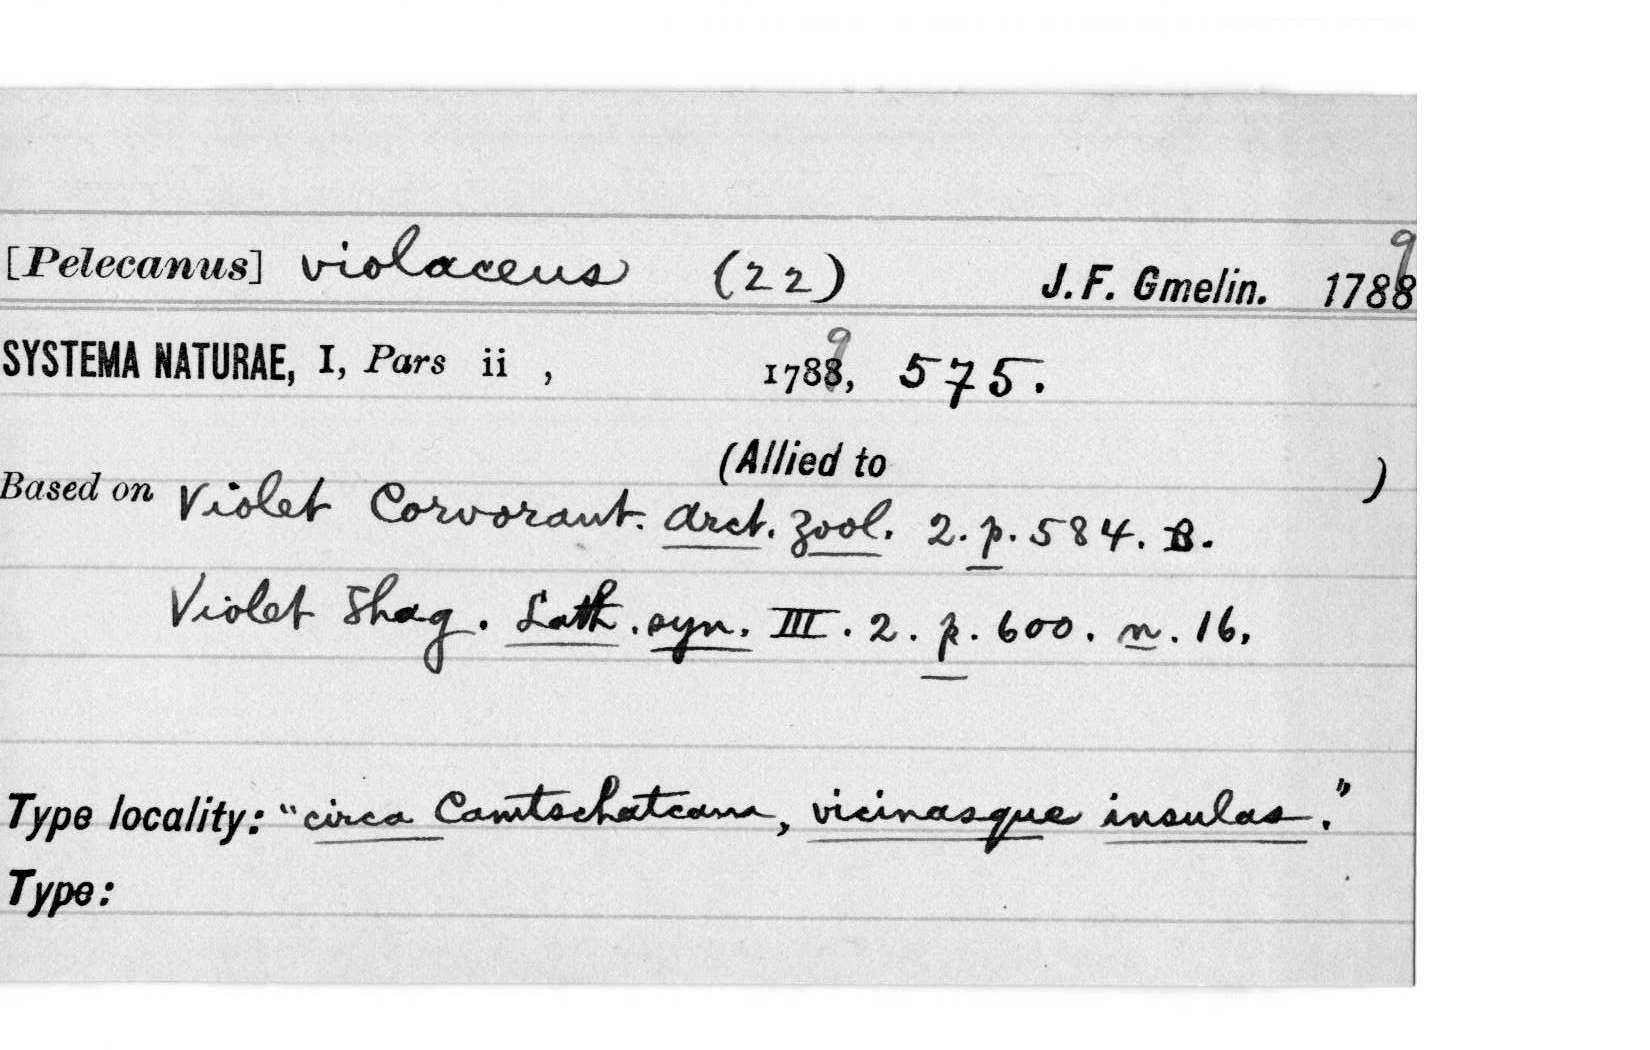 [Pelecanus] violaceus (22) J. F. Gmelin. 1789
SYSTEMA NATURAE, I, Pars ii , 1789, 575.
(Allied to )
Based on Violet Corvorant. Arct. Zool. 2. p. 584. B.
Violet Shag. Lath. syn. III. 2. p. 600. n. 16.
Type locality: "circa Camtschatcam, vicinasque insulas."
Type: